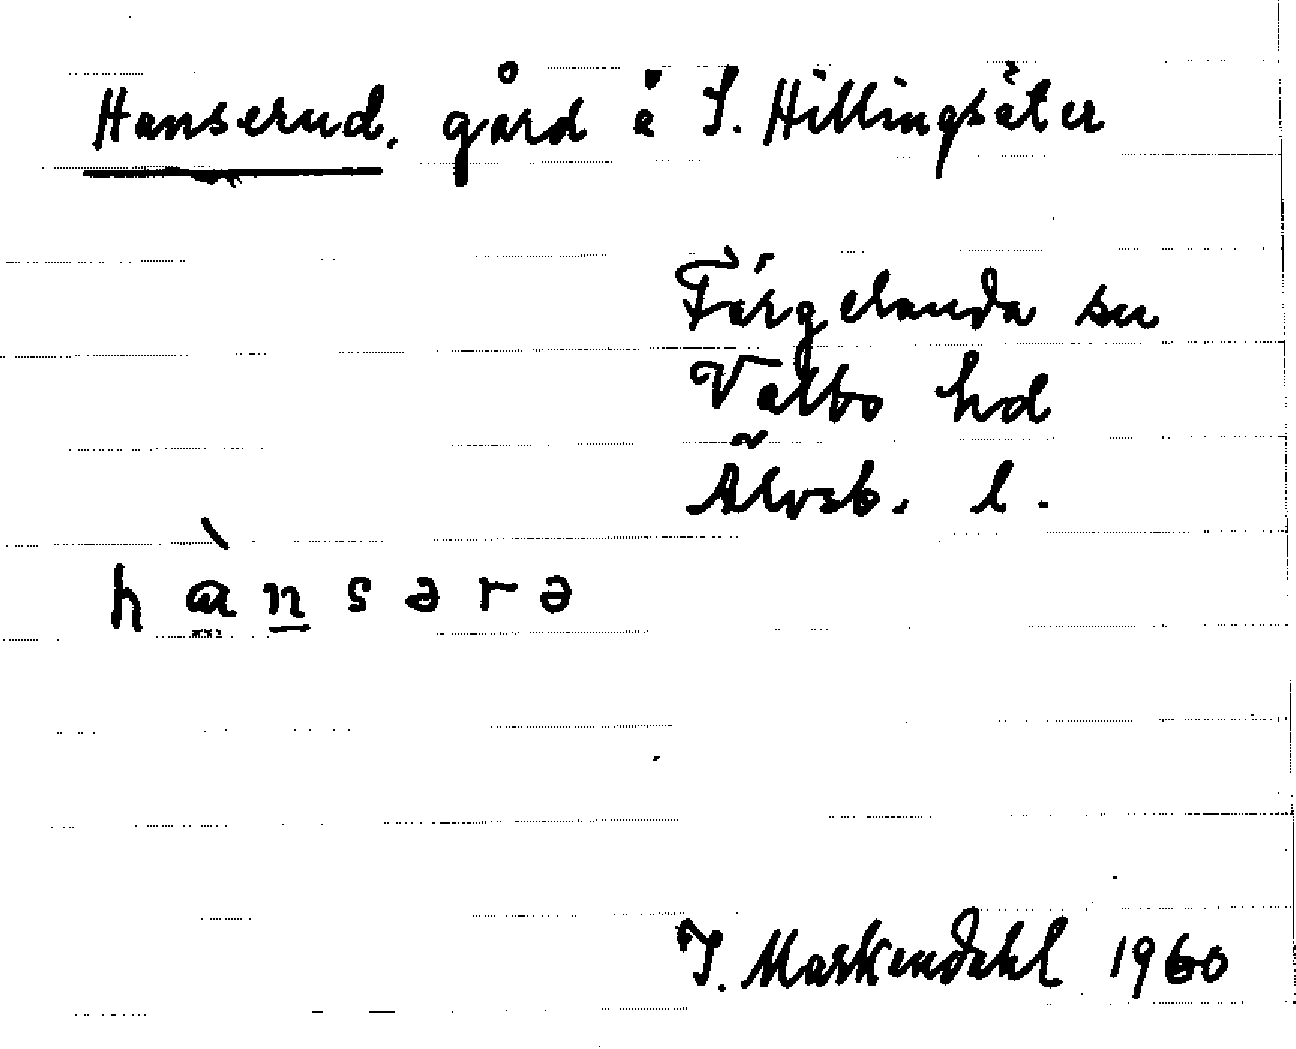 Hanserud. gård å S. Hillingsäter
Färgelanda sn
Valbo hd
Älvsb. l.
hànsərə
I. Markendahl 1960